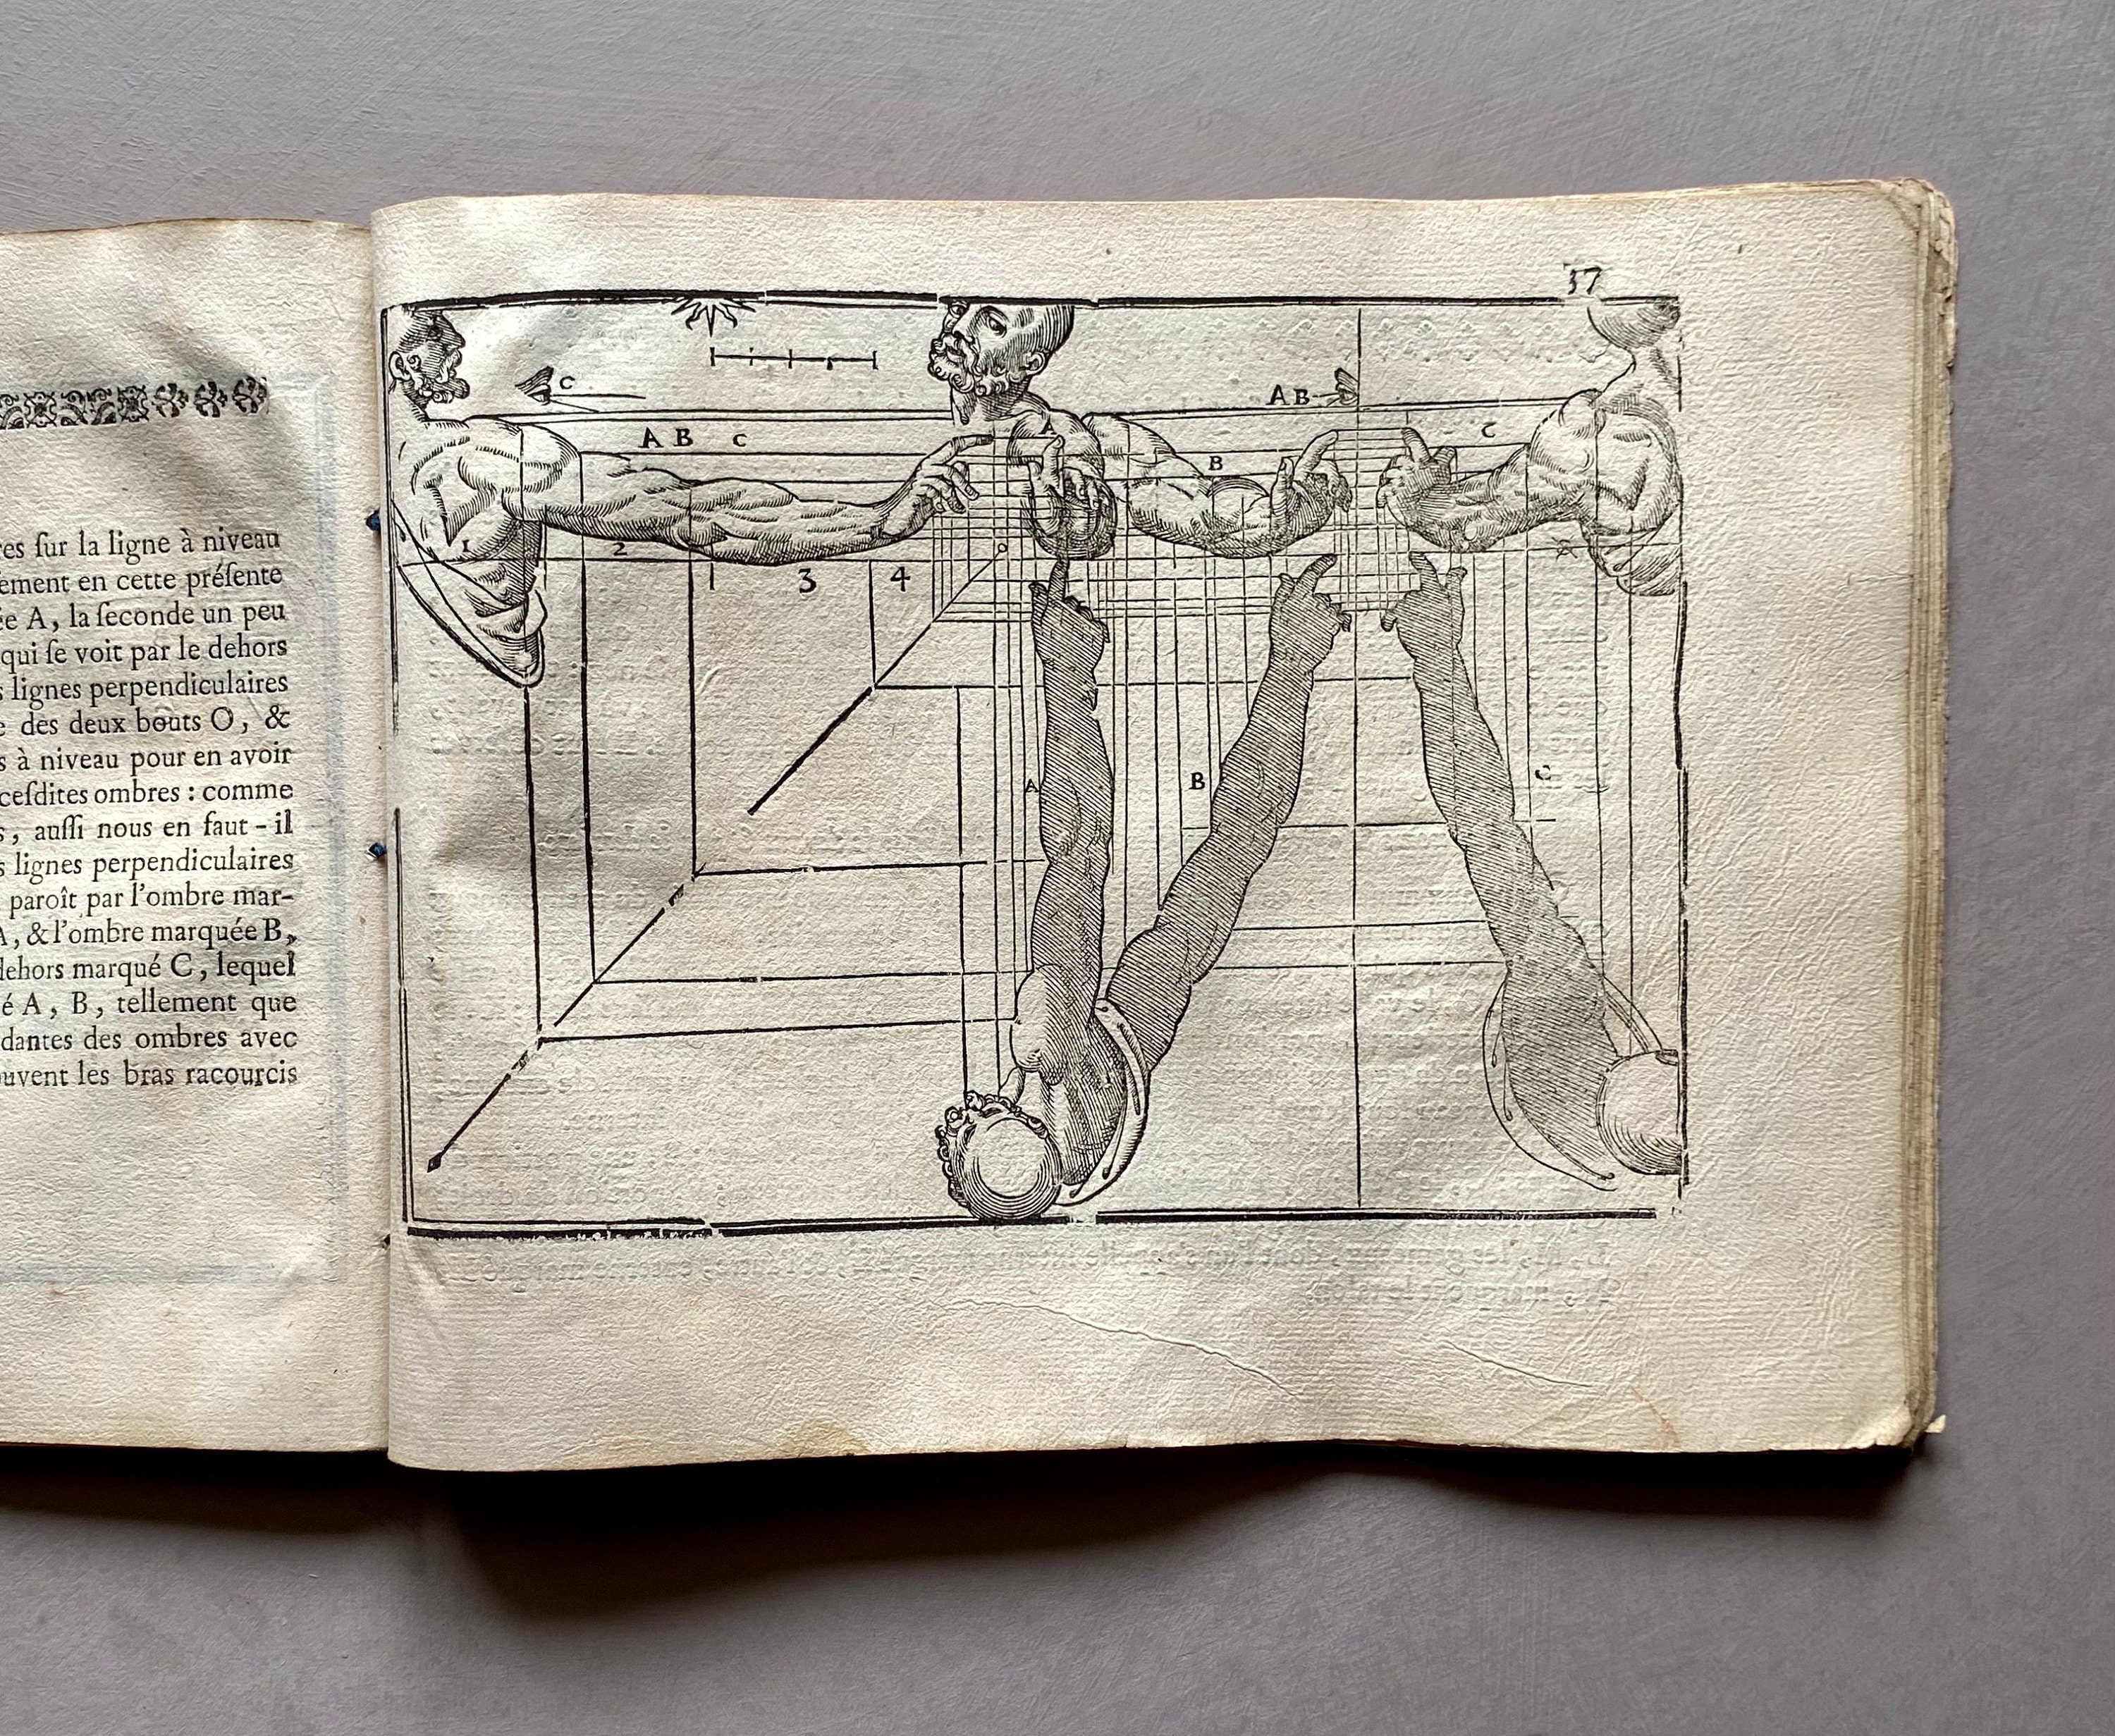 res ſur la ligne à niveau
ement en cette préſente
ée A, la ſeconde un peu
qui ſe voit par le dehors
s lignes perpendiculaires
e des deux bouts O, &
s à niveau pour en avoir
ceſdites ombres : comme
s, auſſi nous en faut-il
s lignes perpendiculaires
paroît par l'ombre mar-
A, & l'ombre marquée B,
dehors marqué C, lequel
é A, B, tellement que
dantes des ombres avec
uvent les bras racourcis
37
C
A B
A B C
A
B
C
1
2
3
4
O
A
B
C